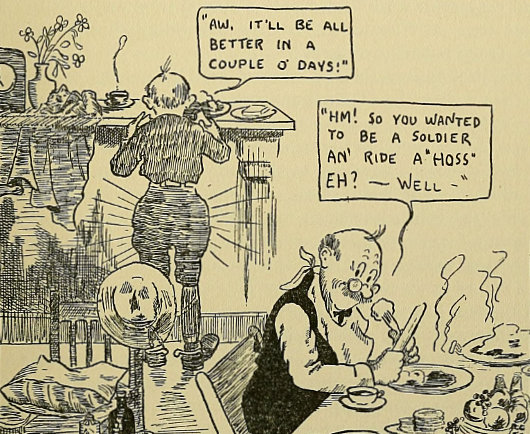 "AW, IT'LL BE ALL
BETTER IN A
COUPLE O' DAYS!"
"HM! SO YOU WANTED
TO BE A SOLDIER
AN' RIDE A "HOSS"
EH? — WELL -"